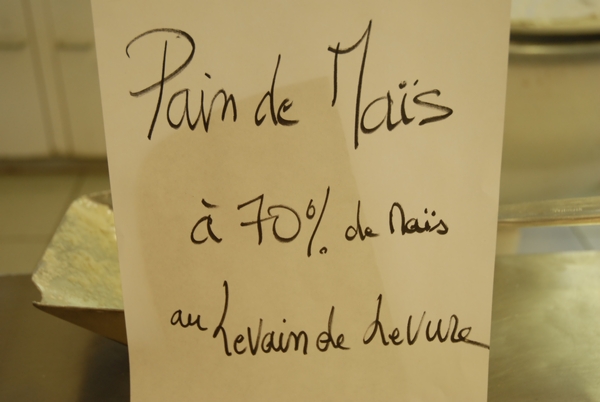 Pain de Maïs
à 70% de Maïs
au Levain de Levure